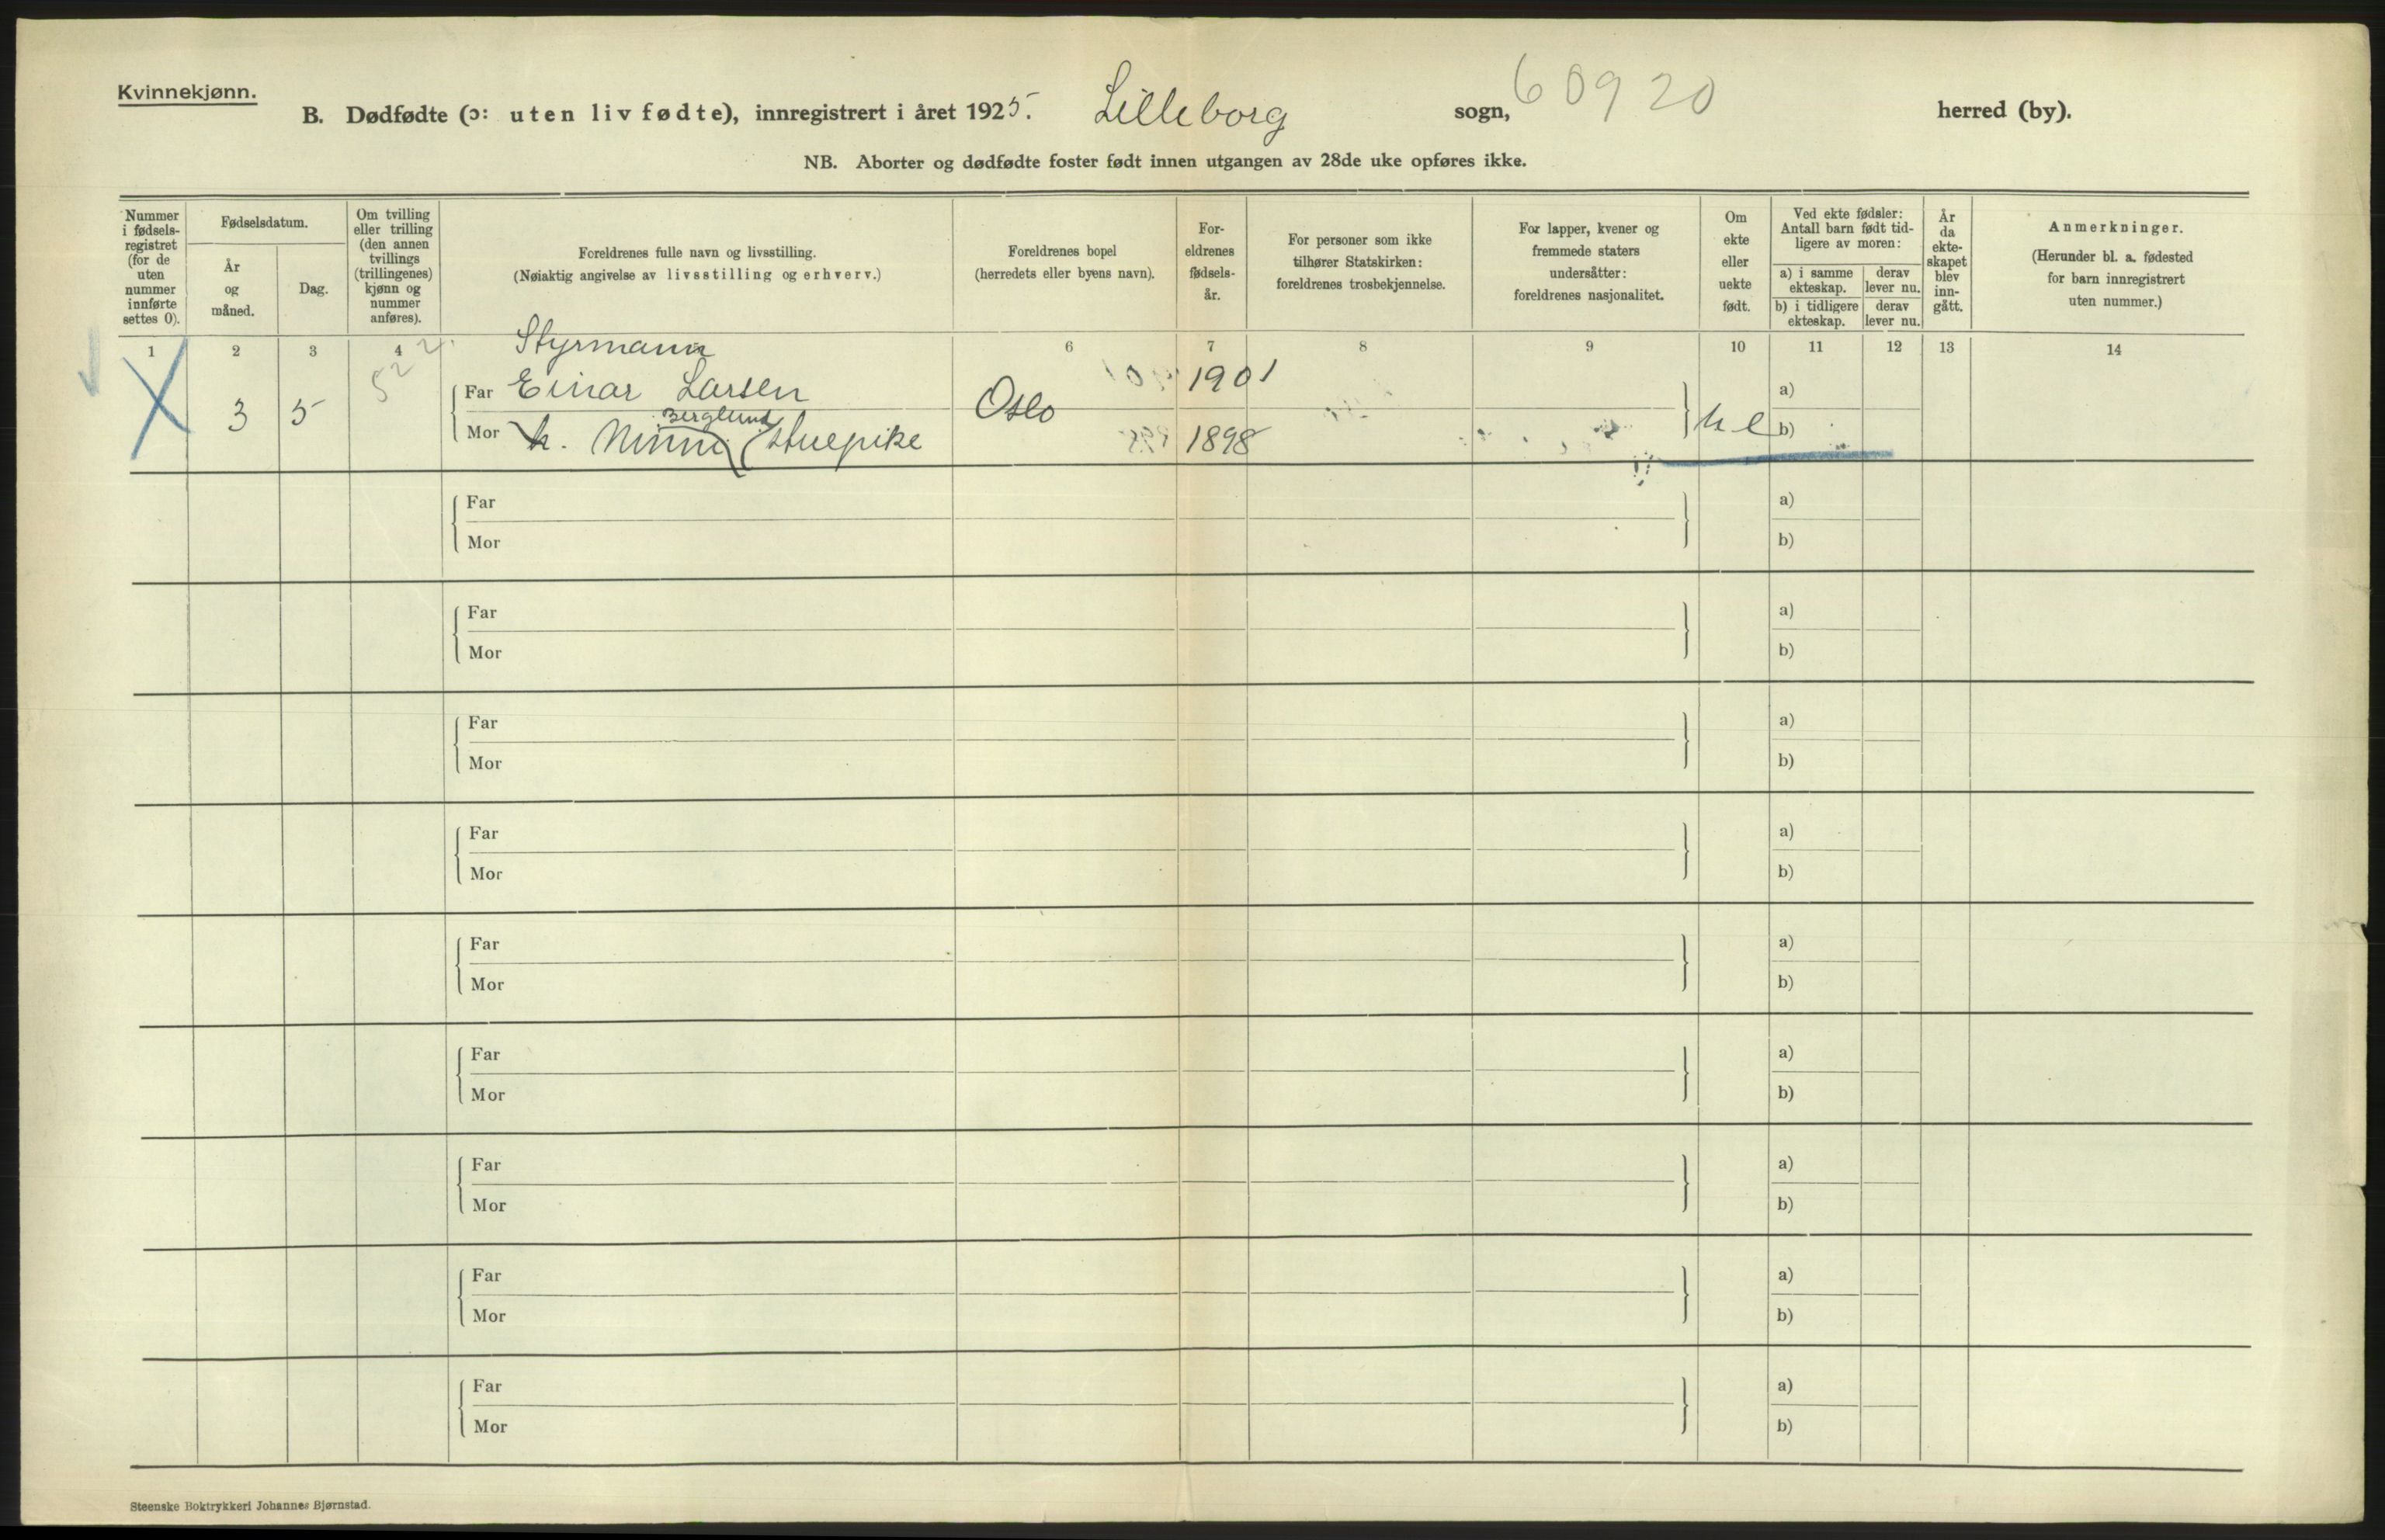 Kvinnekjønn.
B. Dødfødte (ɔ: uten liv fødte), innregistrert i året 1925. Lilleborg sogn, 60920 herred (by).
NB. Aborter og dødfødte foster født innen utgangen av 28de uke opføres ikke.
Nummer i fødselsregistret (for de uten nummer innførte settes 0).
Fødselsdatum.
År og måned.
Dag.
Om tvilling eller trilling (den annen tvillings (trillingenes) kjønn og nummer anføres).
Foreldrenes fulle navn og livsstilling.
(Nøiaktig angivelse av livsstilling og erhverv.)
Foreldrenes bopel
(herredets eller byens navn).
Foreldrenes fødselsår.
For personer som ikke tilhører Statskirken: foreldrenes trosbekjennelse.
For lapper, kvener og fremmede staters undersåtter: foreldrenes nasjonalitet.
Om ekte eller uekte født.
Ved ekte fødsler: Antall barn født tidligere av moren:
a) i samme ekteskap. derav lever nu.
b) i tidligere ekteskap. derav lever nu.
År da ekteskapet blev inngått.
Anmerkninger.
(Herunder bl. a. fødested for barn innregistrert uten nummer.)
1 2 3 4 6 7 8 9 10 11 12 13 14
Styrmann
Far Einar Larsen 1901 a)
3 5 Oslo ue
Berglund
Mor h. Minni stuepike 1898 b)
Far a)
Mor b)
Far a)
Mor b)
Far a)
Mor b)
Far a)
Mor b)
Far a)
Mor b)
Far a)
Mor b)
Far a)
Mor b)
Far a)
Mor b)
Far a)
Mor b)
Steenske Boktrykkeri Johannes Bjørnstad.